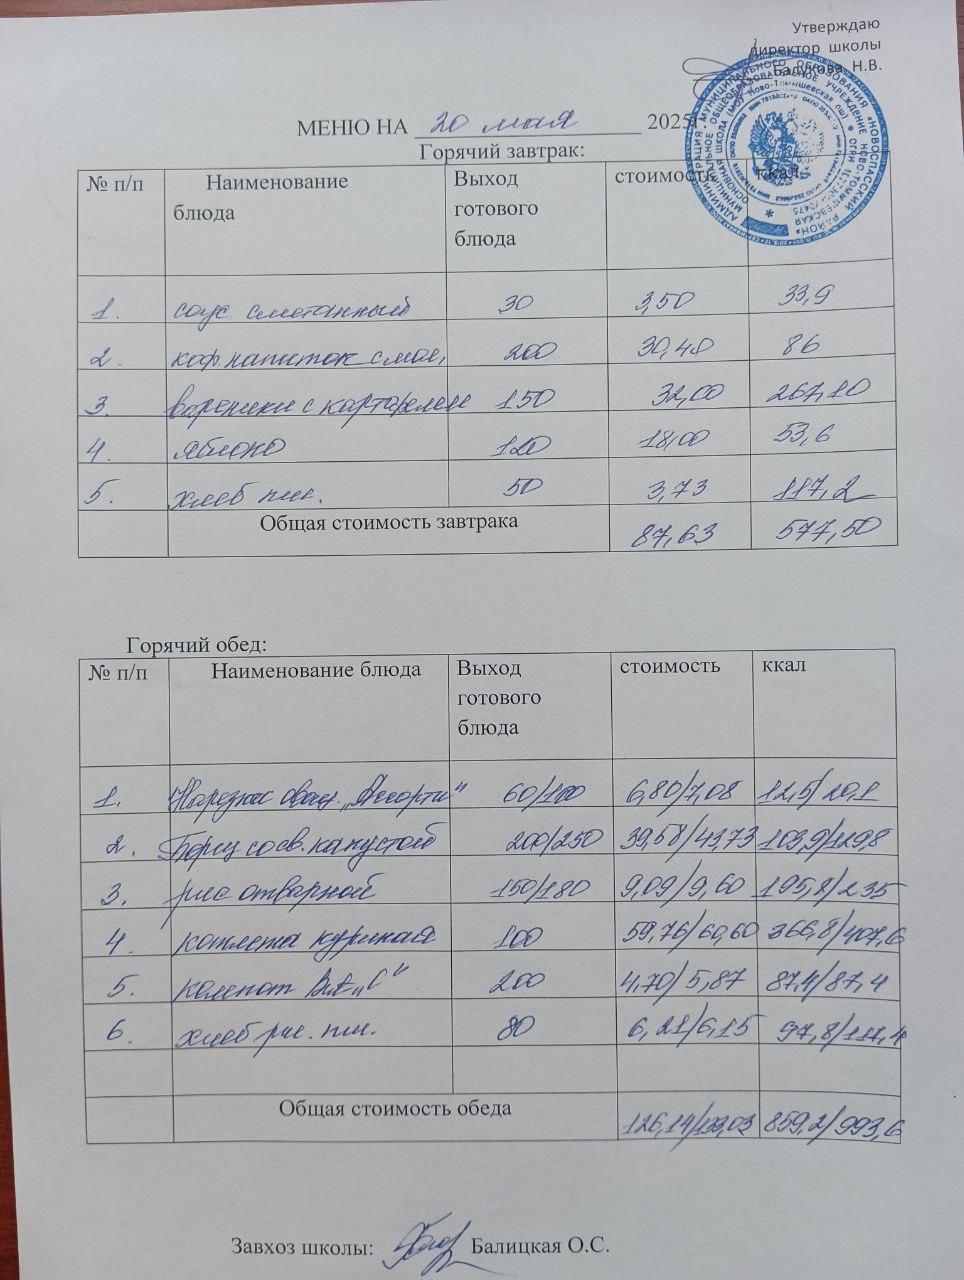 Утверждаю
директор школы
Балукова Н.В.
МЕНЮ НА 20 мая 2025г
Горячий завтрак:
№ п/п Наименование блюда Выход готового блюда стоимость ккал
1. соус сметанный 30 3,50 33,9
2. коф.напиток с мол. 200 30,40 86
3. вареники с картофелем 150 32,00 267,10
4. яблоко 120 18,00 53,6
5. хлеб пш. 50 3,73 117,2
Общая стоимость завтрака 87,63 577,50
Горячий обед:
№ п/п Наименование блюда Выход готового блюда стоимость ккал
1. Нарезка овощ. „Ассорти" 60/100 6,80/7,08 12,5/20,1
2. Борщ со св. капустой 200/250 39,58/43,73 103,9/129,8
3. рис отварной 150/180 9,09/9,60 195,8/235
4. котлета куриная 100 59,76/60,60 366,8/407,6
5. компот Вит „С" 200 4,70/5,87 87,4/87,4
6. хлеб рж. пш. 80 6,21/6,15 97,8/117,4
Общая стоимость обеда 126,14/133,03 859,2/993,6
Завхоз школы: Балицкая О.С.